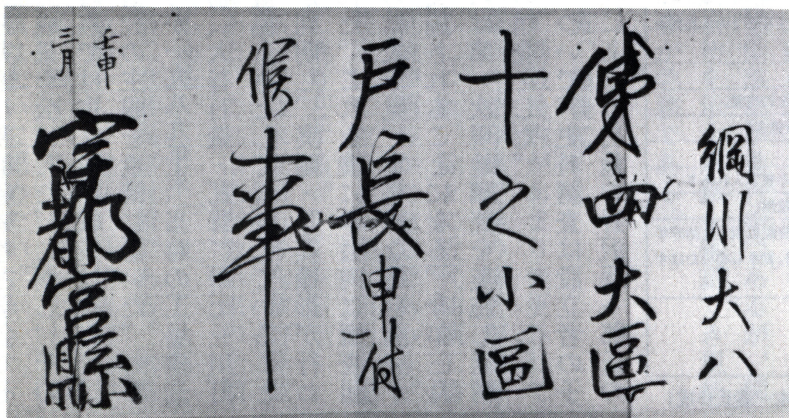 綱川大八
第四大區
十之小區
戸長申付
候事
壬申
三月
宇都宮縣